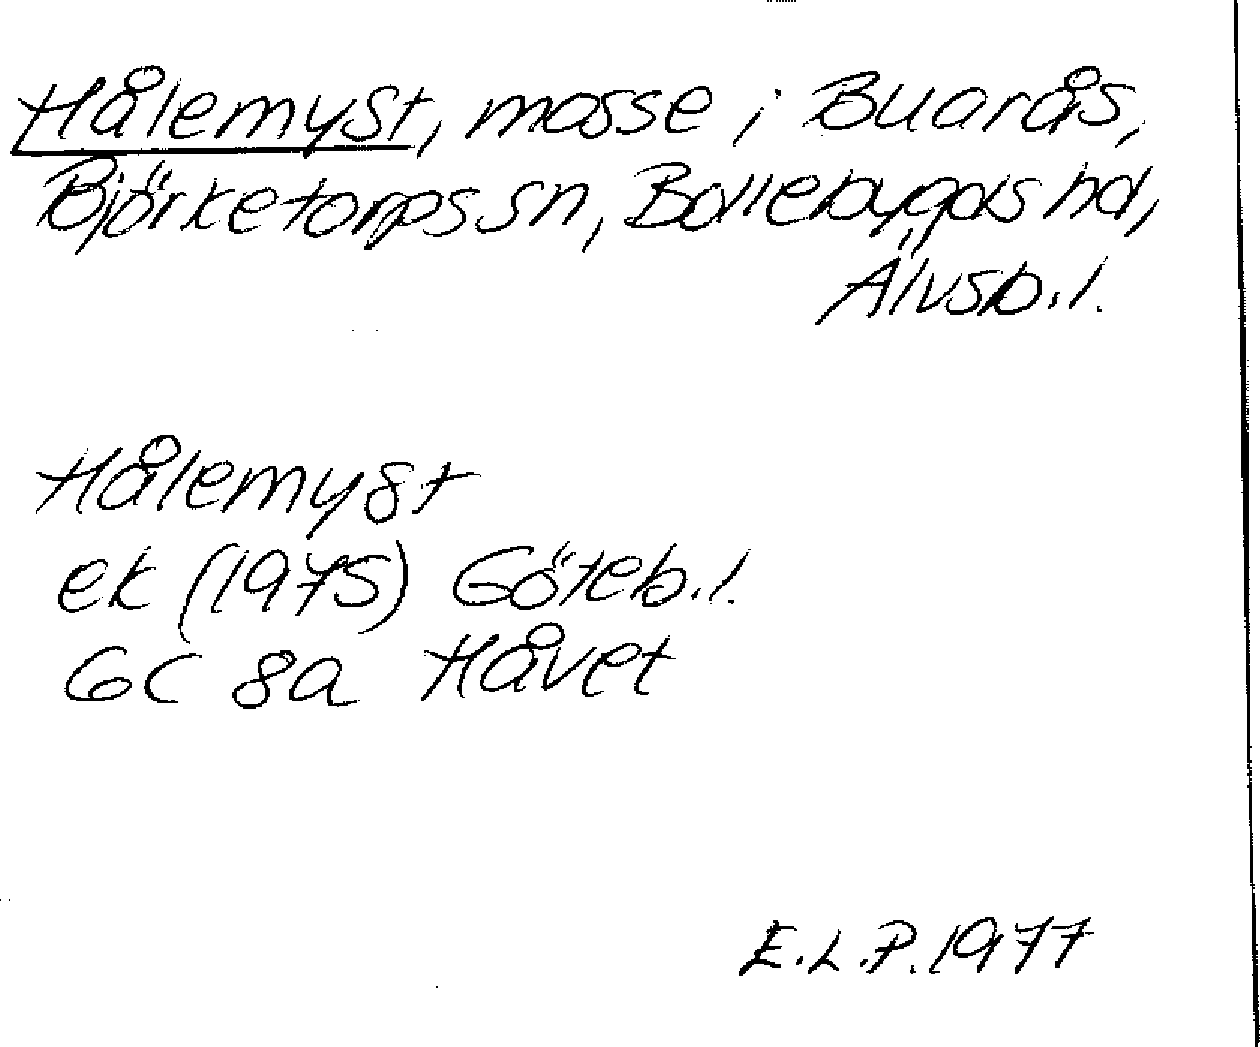 Hålemyst, mosse i Buarås,
Björketorps sn, Bollebygds hd,
Älvsb. l.
Hålemyst
ek (1975) Göteb. l.
6C 8a Håvet
E.L.P. 1977